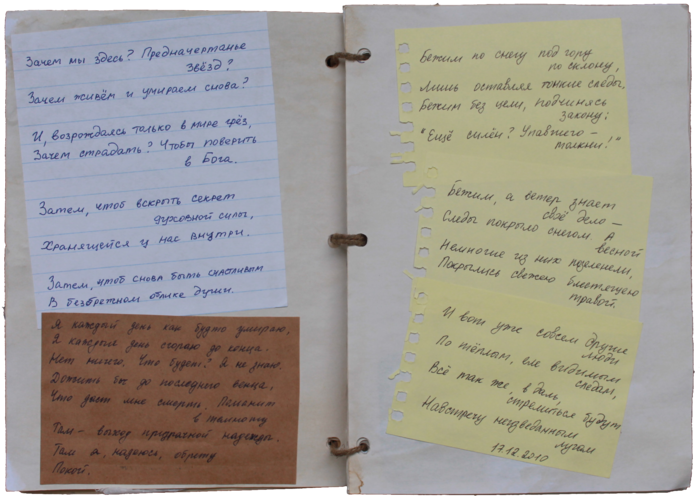 Зачем мы здесь? Предначертанье
звёзд?
Зачем живём и умираем снова?
И, возрождаясь только в мире грёз,
Зачем страдать? Чтобы поверить
в Бога.
Затем, чтоб вскрыть секрет
духовной силы,
Хранящейся у нас внутри.
Затем, чтоб снова быть счастливым
В безбрежном облике души.
Я каждый день как будто умираю,
Я каждый день сгораю до конца.
Нет ничего. Что будет? Я не знаю.
Дожить бы до последнего венца,
Что даст мне смерть. Поманит
в темноту
Там – выход призрачной надежды.
Там я, надеюсь, обрету
Покой.
Бежим по снегу под гору
по склону,
Лишь оставляя тонкие следы,
Бежим без цели, подчиняясь
закону:
"Ещё силён? Упавшего –
толкни!"
Бежим, а ветер знает
своё дело –
Следы покрыло снегом. А
весной
Немногие из них позеленели,
Покрылись свежею блестящею
травой.
И вот уже совсем другие
люди
По тёплым, еле видимым
следам,
Всё так же, в даль,
стремиться будут
Навстречу неизведанным
лугам
17.12.2010